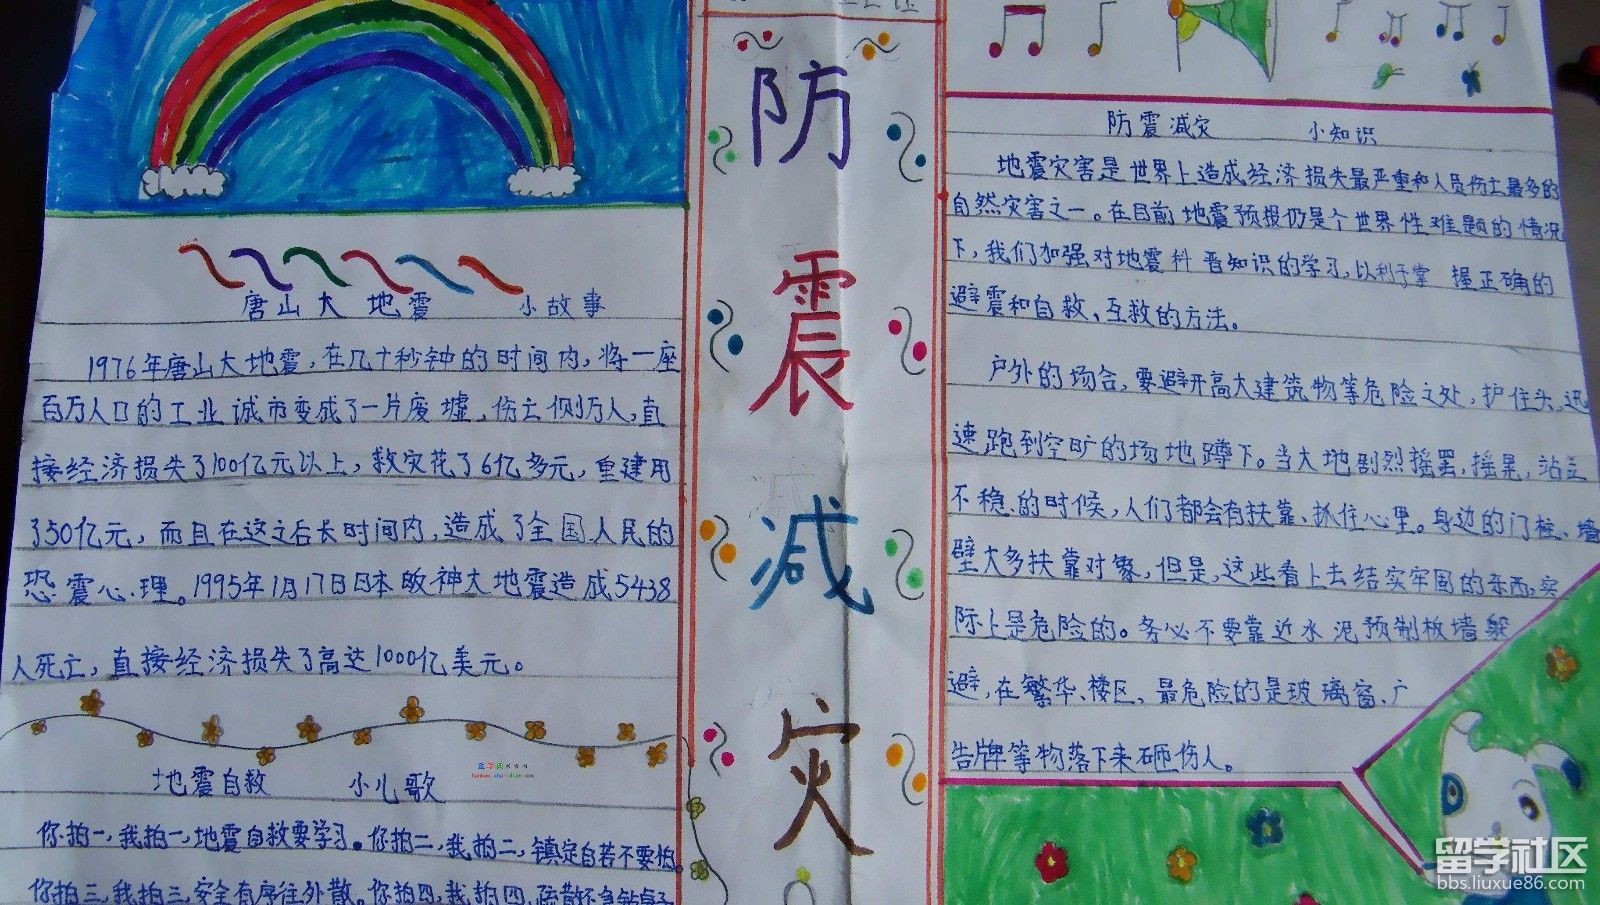 唐山大地震 小故事
1976年唐山大地震,在几十秒钟的时间内,将一座
百万人口的工业诚市变成了一片废墟,伤亡侧万人,直
接经济损失了100亿元以上,救灾花了6亿多元,重建用
了50亿元,而且在这之后长时间内,造成了全国人民的
恐震心理。1995年1月17日日本阪神大地震造成5438
人死亡,直接经济损失了高达1000亿美元。
地震自救 小儿歌
你拍一,我拍一,地震自救要学习。你拍二,我拍二,镇定自若不要怕。
你拍三,我拍三,安全有序往外散。你拍四,我拍四,疏散不急钻桌子
防
震
减
灾
防震减灾 小知识
地震灾害是世界上造成经济损失最严重和人员伤亡最多的
自然灾害之一。在目前地震预报仍是个世界性难题的情况
下,我们加强对地震科晋知识的学习,以利于掌握正确的
避震和自救、互救的方法。
户外的场合,要避开高大建筑物等危险之处,护住头,迅
速跑到空旷的场地蹲下。当大地剧烈摇罢,摇晃,站立
不稳的时候,人们都会有扶靠、抓住心里。身边的门柱、墙
壁大多扶靠对象,但是,这些看上去结实牢固的东西,实
际上是危险的。务必不要靠近水泥预制板墙躲
避,在繁华、楼区,最危险的是玻璃窗、广
告牌等物落下来砸伤人。
留学社区
bbs.liuxue86.com